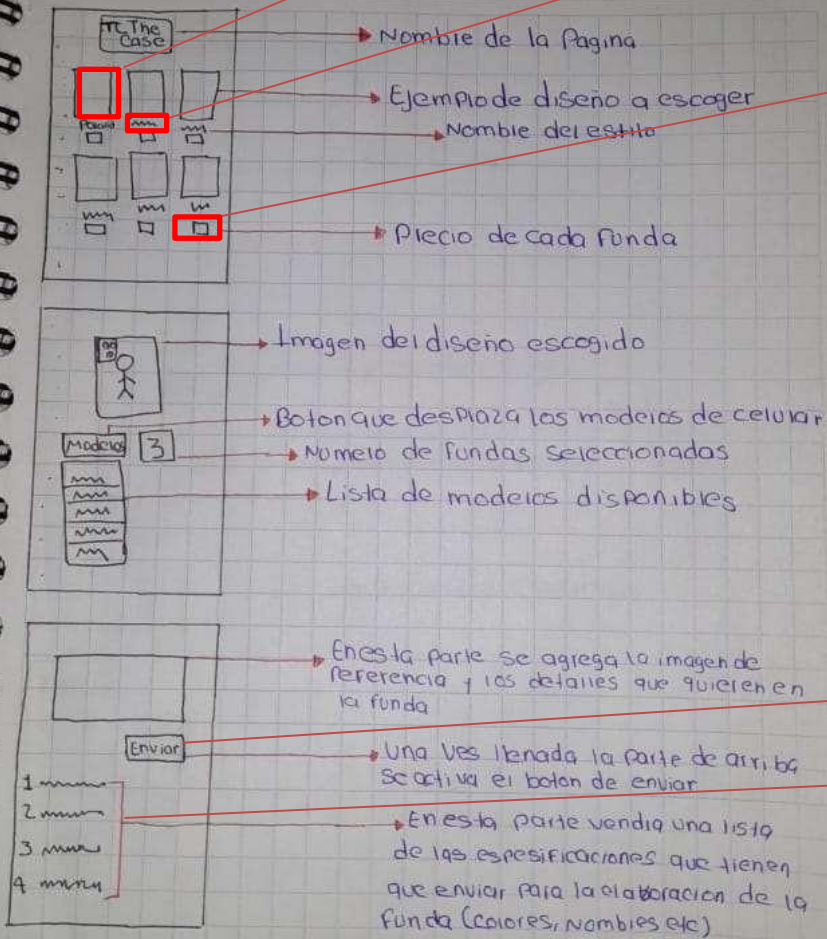 The
Case
Nombre de la Pagina
Ejemplo de diseño a escoger
Nombre del estilo
Precio de cada funda
Imagen del diseño escogido
Boton que desplaza los modelos de celular
Modelos
3
Numero de fundas seleccionadas
Lista de modelos disponibles
En esta parte se agrega la imagen de
referencia y los detalles que quieren en
la funda
Enviar
Una ves llenada la parte de arriba
se activa el boton de enviar
1
2
3
4
En esta parte vendria una lista
de las espesificaciones que tienen
que enviar para la elaboracion de la
funda (colores, Nombres etc)